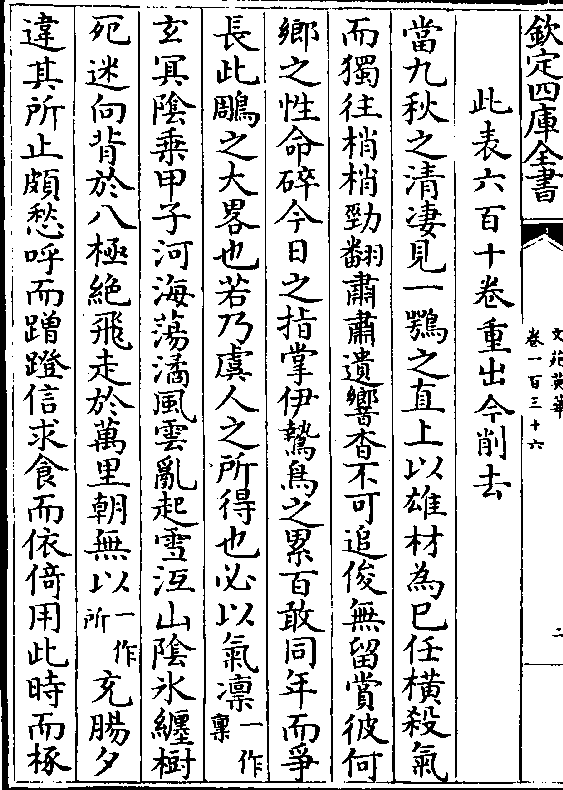 欽定四庫全書
文苑英華
卷一百三十六
二
此表六百十卷重出今削去
當九秋之清凄見一鶚之直上以雄材為已任橫殺氣
而獨往梢梢勁翮肅肅遺響杳不可追俊無留賞彼何
鄉之性命碎今日之指掌伊鷙鳥之累百敢同年而爭
長此鵰之大畧也若乃虞人之所得也必以氣凛一作稟
玄冥陰乘甲子河海蕩潏風雲亂起雪冱山陰氷纏樹
死迷向背於八極絶飛走於萬里朝無以一作所充腸夕
違其所止頗愁呼而蹭蹬信求食而依倚用此時而椓